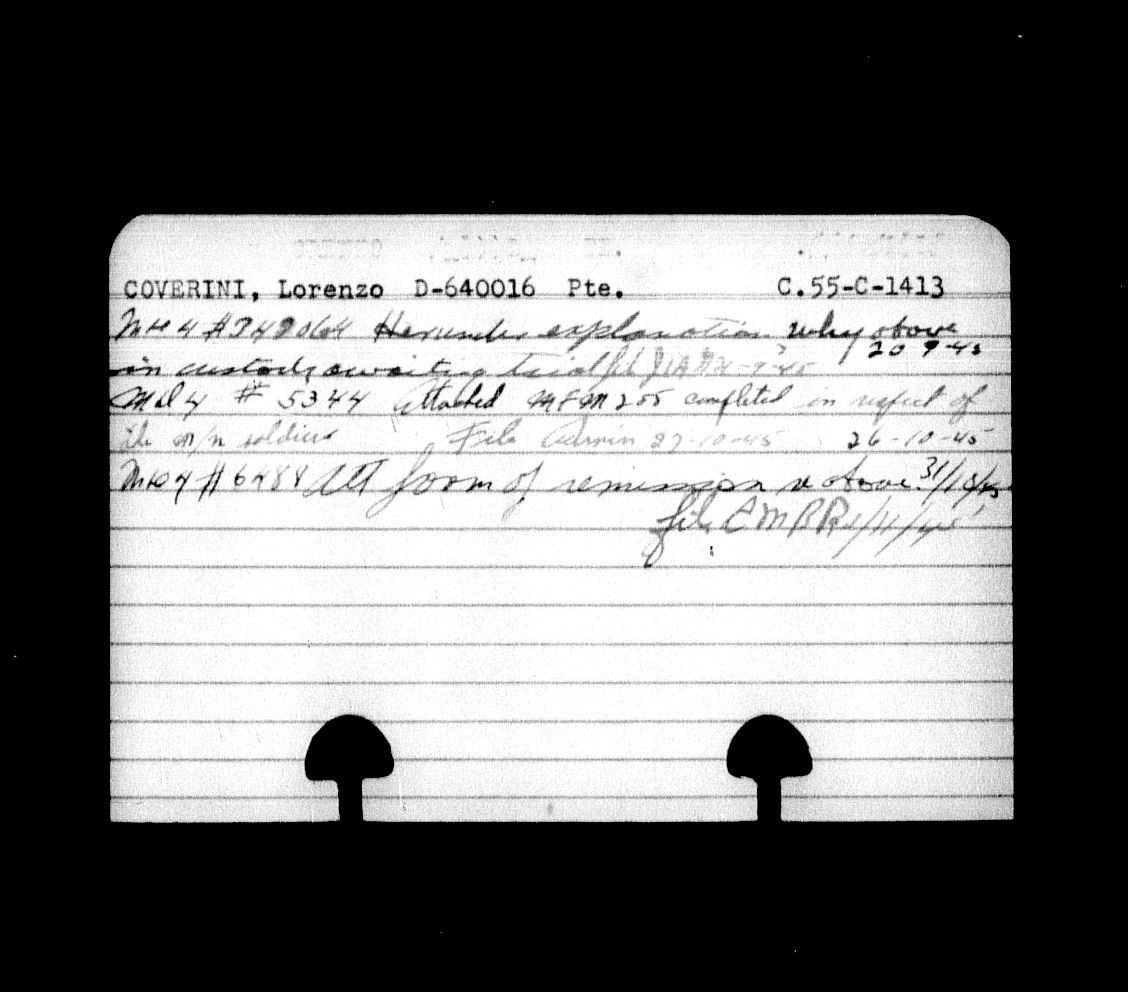 COVERINI, Lorenzo D-640016 Pte. C.55-C-1413
# 742064 Hereunder explanation why above
in custody awaiting trial 20-9-45
MD 4 # 5344 Attached MFM 255 completed in respect of
the m/n soldier File Admin 27-10-45 26-10-45
# 6484 Att form of remission above. 31/10/45
file